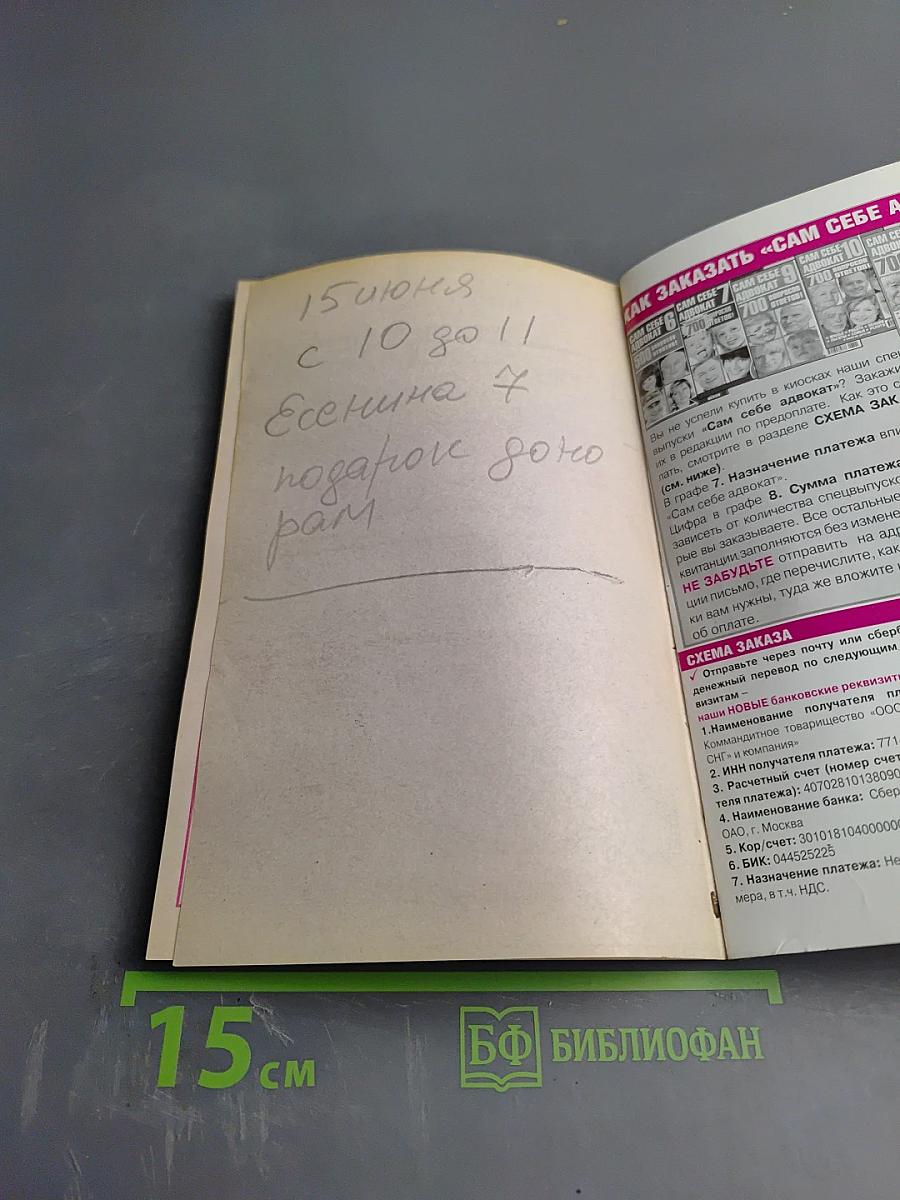 15 июня
с 10 до 11
Есенина 7
подарок доно
рам
КАК ЗАКАЗАТЬ «САМ СЕБЕ А
САМ СЕБЕ АДВОКАТ 6
САМ СЕБЕ АДВОКАТ 7
700
САМ СЕБЕ АДВОКАТ 9
700 ВОПРОСОВ ОТВЕТОВ!
САМ СЕБЕ АДВОКАТ 10
700 ВОПРОСОВ ОТВЕТОВ!
Вы не успели купить в киосках наши спец
выпуски «Сам себе адвокат»? Закажи
их в редакции по предоплате. Как это с
лать, смотрите в разделе СХЕМА ЗАК
(см. ниже).
В графе 7. Назначение платежа впи
«Сам себе адвокат».
Цифра в графе 8. Сумма платежа
зависеть от количества спецвыпуско
рые вы заказываете. Все остальные
квитанции заполняются без измене
НЕ ЗАБУДЬТЕ отправить на адр
ции письмо, где перечислите, как
ки вам нужны, туда же вложите
об оплате.
СХЕМА ЗАКАЗА
✓ Отправьте через почту или сберб
денежный перевод по следующим
визитам –
наши НОВЫЕ банковские реквизиты
1.Наименование получателя пл
Коммандитное товарищество «ООС
СНГ» и компания»
2. ИНН получателя платежа: 771
3. Расчетный счет (номер счет
теля платежа): 40702810138090
4. Наименование банка: Сбер
ОАО, г. Москва
5. Кор/счет: 3010181040000
6. БИК: 044525225
7. Назначение платежа: Не
мера, в т.ч. НДС.
15 см
БФ БИБЛИОФАН